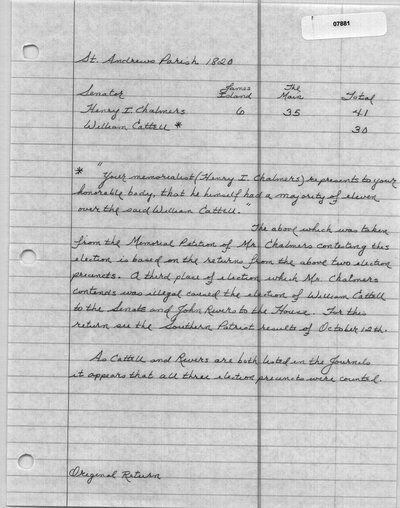 07881
St. Andrews Parish 1820
Senator James Island The Main Total
Henry I. Chalmers 6 35 41
William Cattell * 30
* "Your memorialist (Henry I. Chalmers) represents to your
honorable body, that he himself had a majority of eleven
over the said William Cattell."
The above which was taken
from the Memorial Petition of Mr. Chalmers contesting this
election is based on the returns from the above two election
precincts. A third place of election which Mr. Chalmers
contends was illegal caused the election of William Cattell
to the Senate and John Rivers to the House. For this
return see the Southern Patriot results of October 12th.
As Cattell and Rivers are both listed in the Journals
it appears that all three election precincts were counted.
Original Return